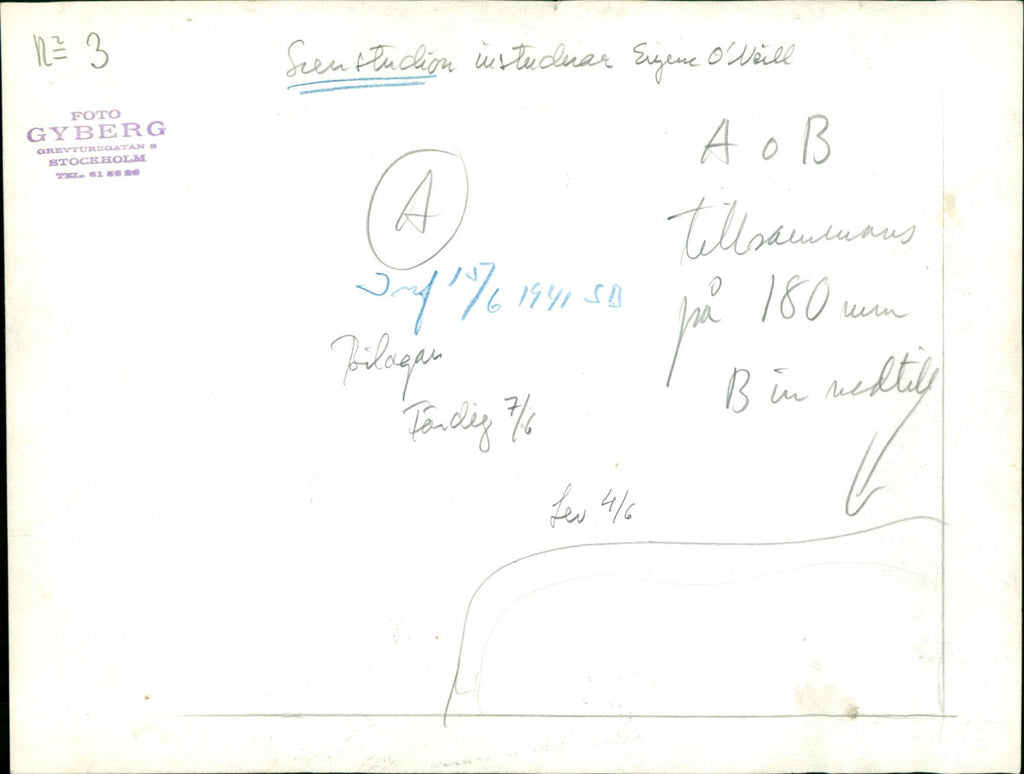 No 3
Scenstudion instuderar Eugene O'Neill
FOTO
GYBERG
GREVTUREGATAN 8
STOCKHOLM
TEL. 61 56 26
A o B
tillsammans
på 180 mm
B in nedtill
A
Inf 15/6 1941 SB
Bilagan
Färdig 7/6
Lev 4/6